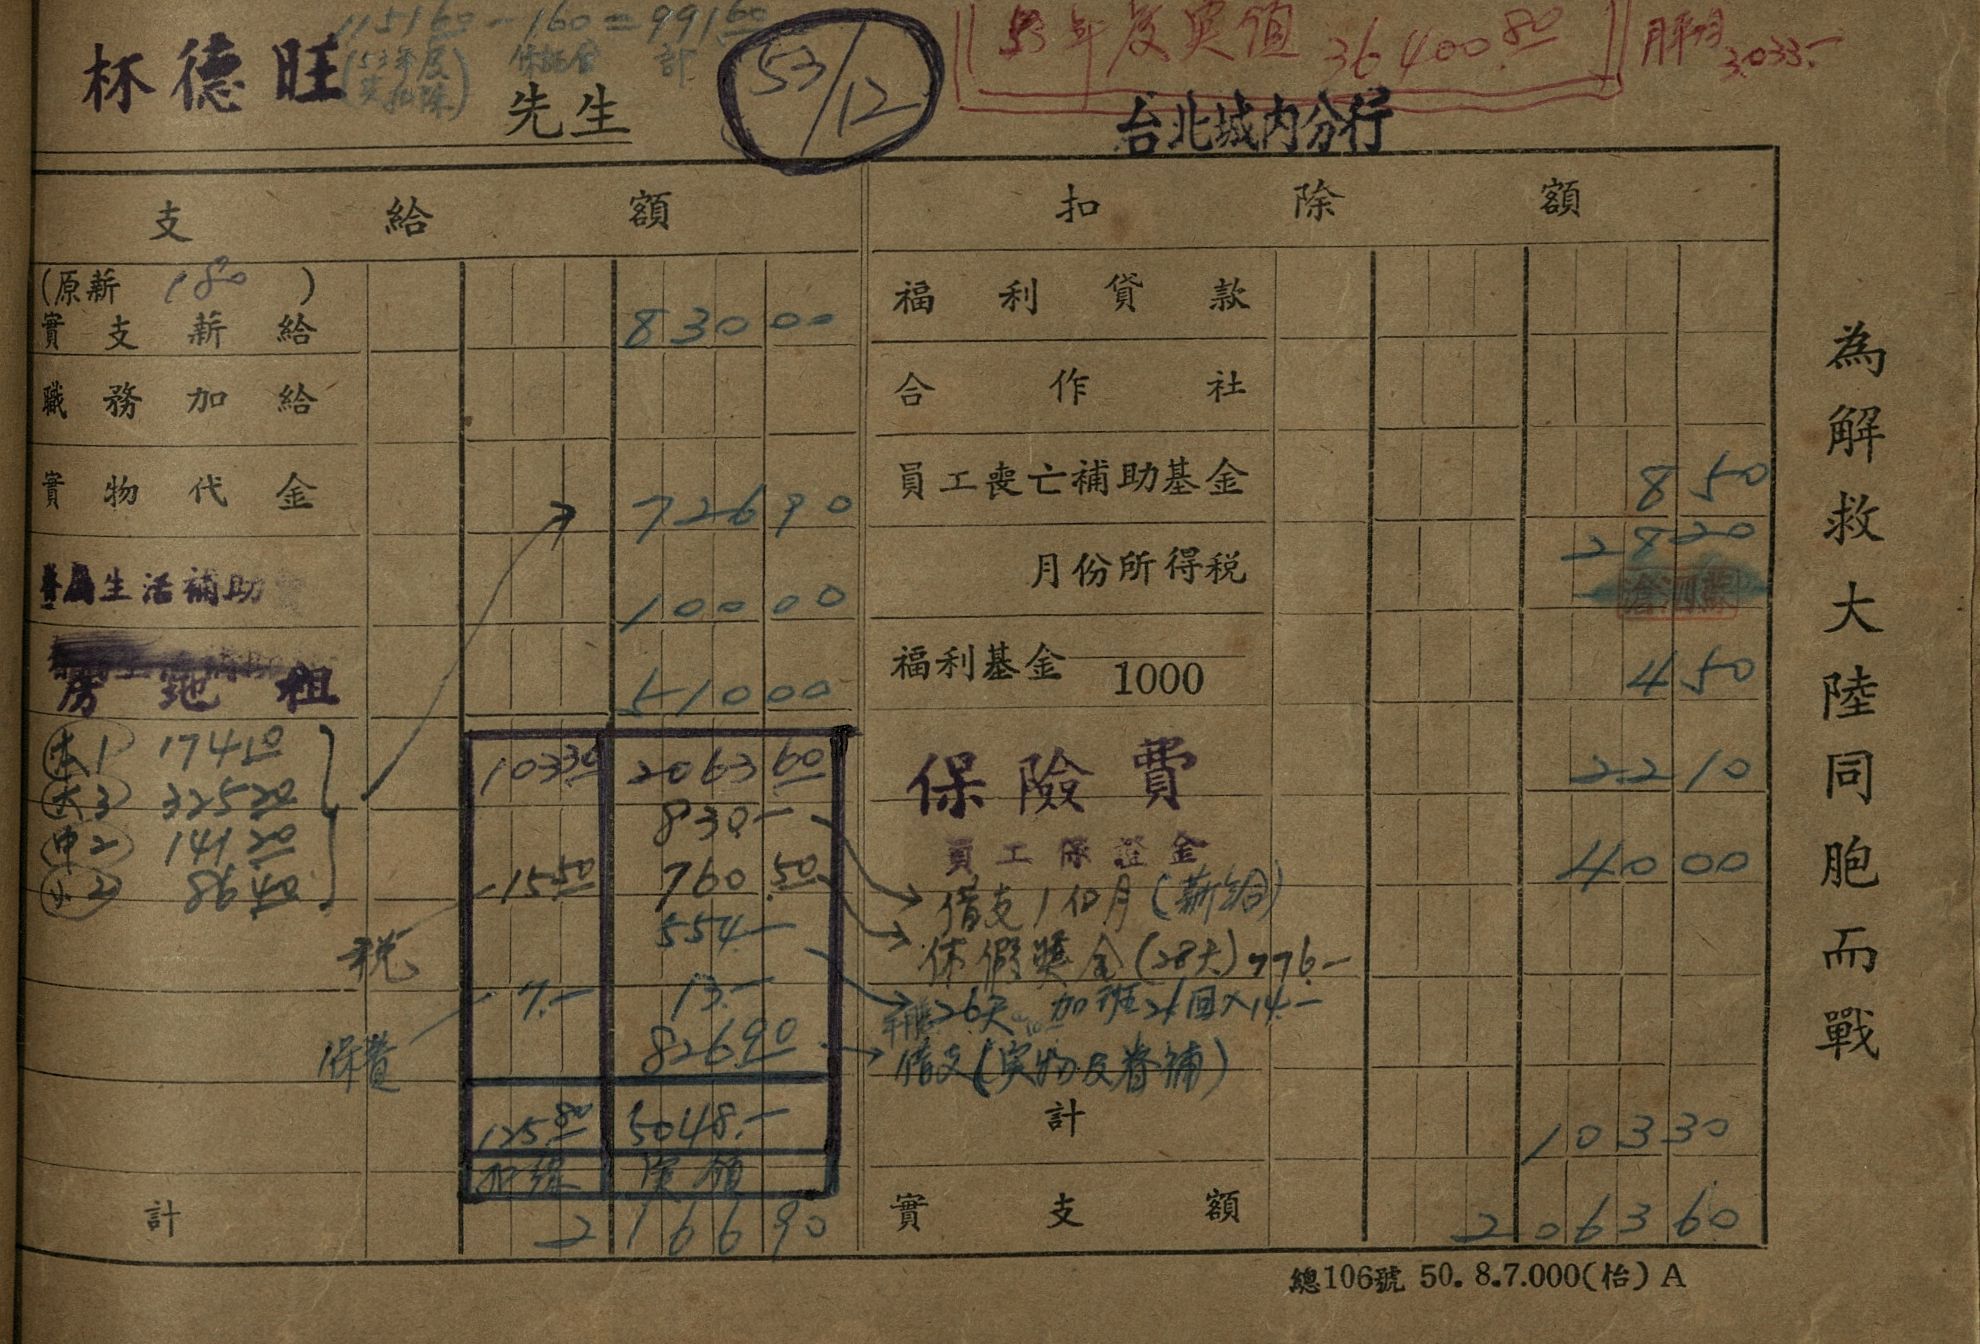 115160-160=99160
(53年度
53/12
53年度実値 36,400.80 月平均 3,033.-
林德旺 先生
台北城内分行
支給額 扣除額
(原薪 180 )
實支薪給 830 00
福利貸款
職務加給
合作社
實物代金 726 90
員工喪亡補助基金 8 50
眷屬生活補助 100 00
月份所得税 28 20
房地租 510 00
福利基金 1000 4 50
大1 174.10
大3 325.20
中2 141.20
小2 86.40
103.30 2063.60
保險費 22 10
830.-
員工保證金 40 00
税 15.50 760.50
借支1個月(薪給)
554.-
休假獎金(28天)776.-
保費 7.- 13.-
26天 加班21回×14.-
826.90
借支(実物及眷補)
125.80 5048.-
計 103 30
扣繳 実領
計 2166 90
實支額 2063 60
總106號 50.8.7.000(怡)A
為解救大陸同胞而戰